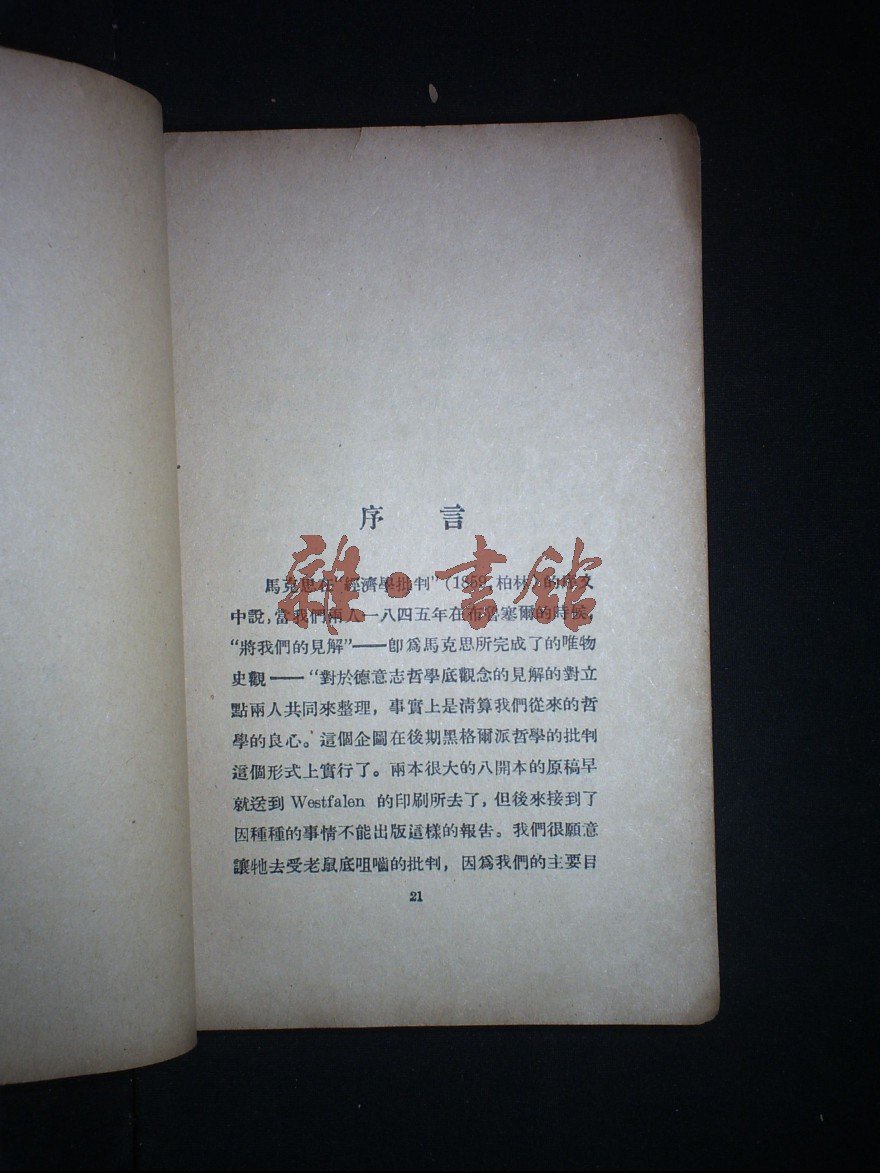 序 言
雜·書館
馬克思在“經濟學批判”（1859, 柏林）的序文
中說，當我們兩人一八四五年在布魯塞爾的時候，
“將我們的見解”——卽爲馬克思所完成了的唯物
史觀——“對於德意志哲學底觀念的見解的對立
點兩人共同來整理，事實上是淸算我們從來的哲
學的良心。這個企圖在後期黑格爾派哲學的批判
這個形式上實行了。兩本很大的八開本的原稿早
就送到 Westfalen 的印刷所去了，但後來接到了
因種種的事情不能出版這樣的報告。我們很願意
讓牠去受老鼠底咀嚙的批判，因爲我們的主要目
21